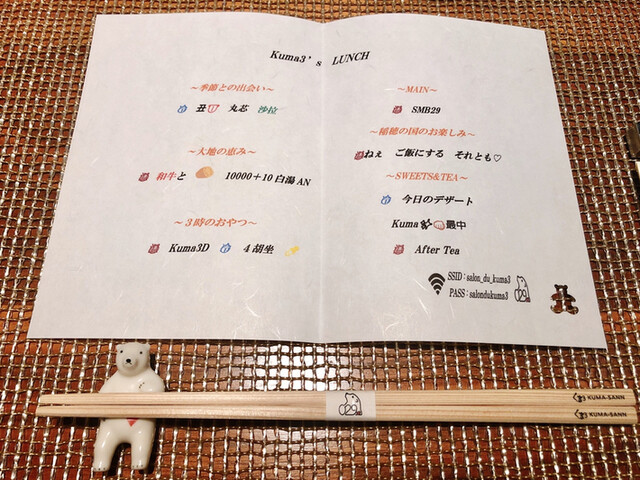 Kuma3's LUNCH
～季節との出会い～
丑 丸芯 沙拉
～大地の恵み～
和牛と 10000＋10白湯AN
～3時のおやつ～
Kuma3D 4胡坐
～MAIN～
SMB29
～稲穂の国のお楽しみ～
ねぇ ご飯にする それとも♡
～SWEETS&TEA～
今日のデザート
Kuma 最中
After Tea
SSID：salon_du_kuma3
PASS：salondukuma3
029
029
KUMA-SANN
KUMA-SANN